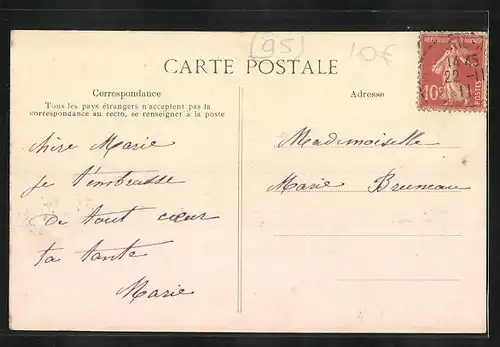 (95)
10€
CARTE POSTALE
Correspondance
Tous les pays étrangers n'acceptent pas la
correspondance au recto, se renseigner à la poste
Adresse
chère Marie
je t'embrasse
de tout cœur
ta tante
Marie
Mademoiselle
Marie Bruneau
10c
POSTES
22 -11